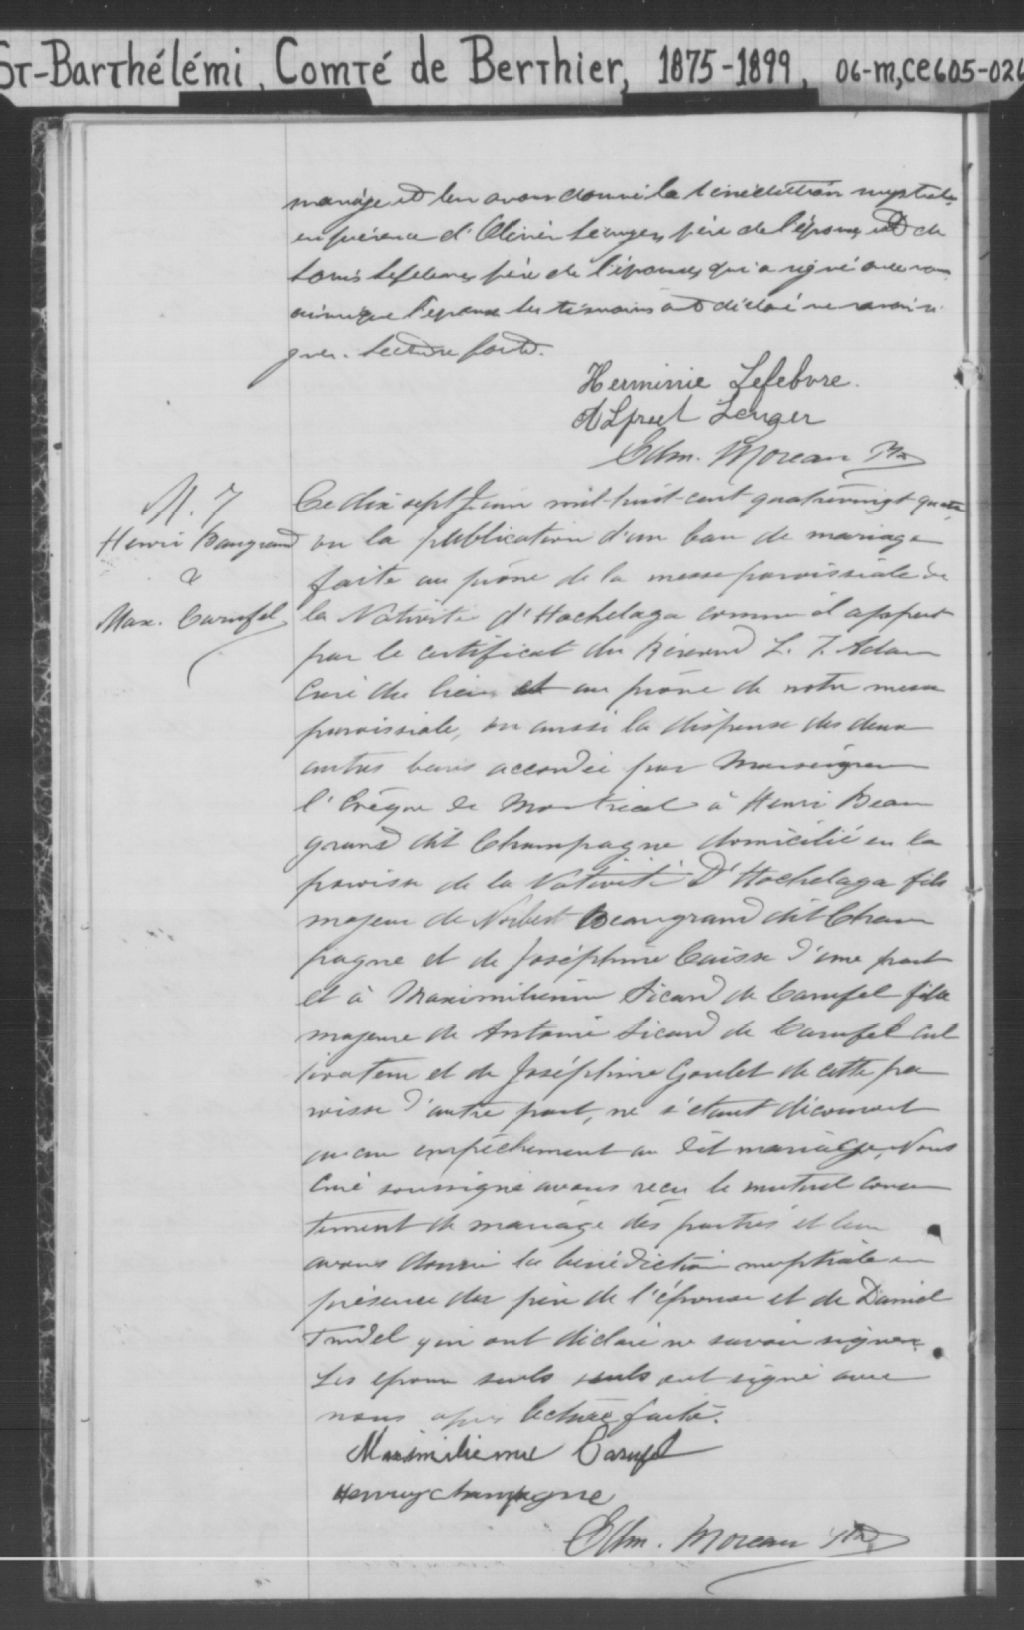 St-Barthélémi, Comté de Berthier, 1875-1899, 06-m,ce605-026
mariage et leur avons donné la bénédiction nuptiale
en présence d'Olivier Lenger, père de l'époux et de
Louis Lefebvre, père de l'épouse, qui a signé avec nous
ainsi que l'épouse les témoins ont déclaré ne savoir si
gner. Lecture faite.
Herminie Lefebvre.
Alfred Lenger
Edm. Moreau Ptr
M. 7
Henri Baugrand
&
Max. Carufel
Ce dix sept Juin mil-huit-cent quatrevingt quatre
vu la publication d'un ban de mariage
faite au prône de la messe paroissiale de
la Nativité d'Hochelaga comme il appert
par le certificat du Révérend L. Z. Adam
Curé du lieu et au prône de notre messe
paroissiale, vu aussi la dispense des deux
autres bans accordée par Monseigneur
l'Evêque de Montréal à Henri Beau
grand dit Champagne domicilié en la
paroisse de la Nativité D'Hochelaga fils
majeur de Norbert Beaugrand dit Cham
pagne et de Joséphine Caisse d'une part
et à Maximilienne Sicard de Carufel fille
majeure de Antoine Sicard de Carufel cul
tivateur et de Joséphine Goulet de cette pa
roisse d'autre part, ne s'étant découvert
aucun empêchement au dit mariage, Nous
Curé soussigné avons reçu le mutuel consen
tement de mariage des parties et leur
avons donné la bénédiction nuptiale en
présence du père de l'épouse et de Daniel
Trudel qui ont déclaré ne savoir signer.
Les époux seuls seuls ont signé avec
nous après lecture faite.
Maximilienne Carufel
Henry Champagne
Edm. Moreau Ptr